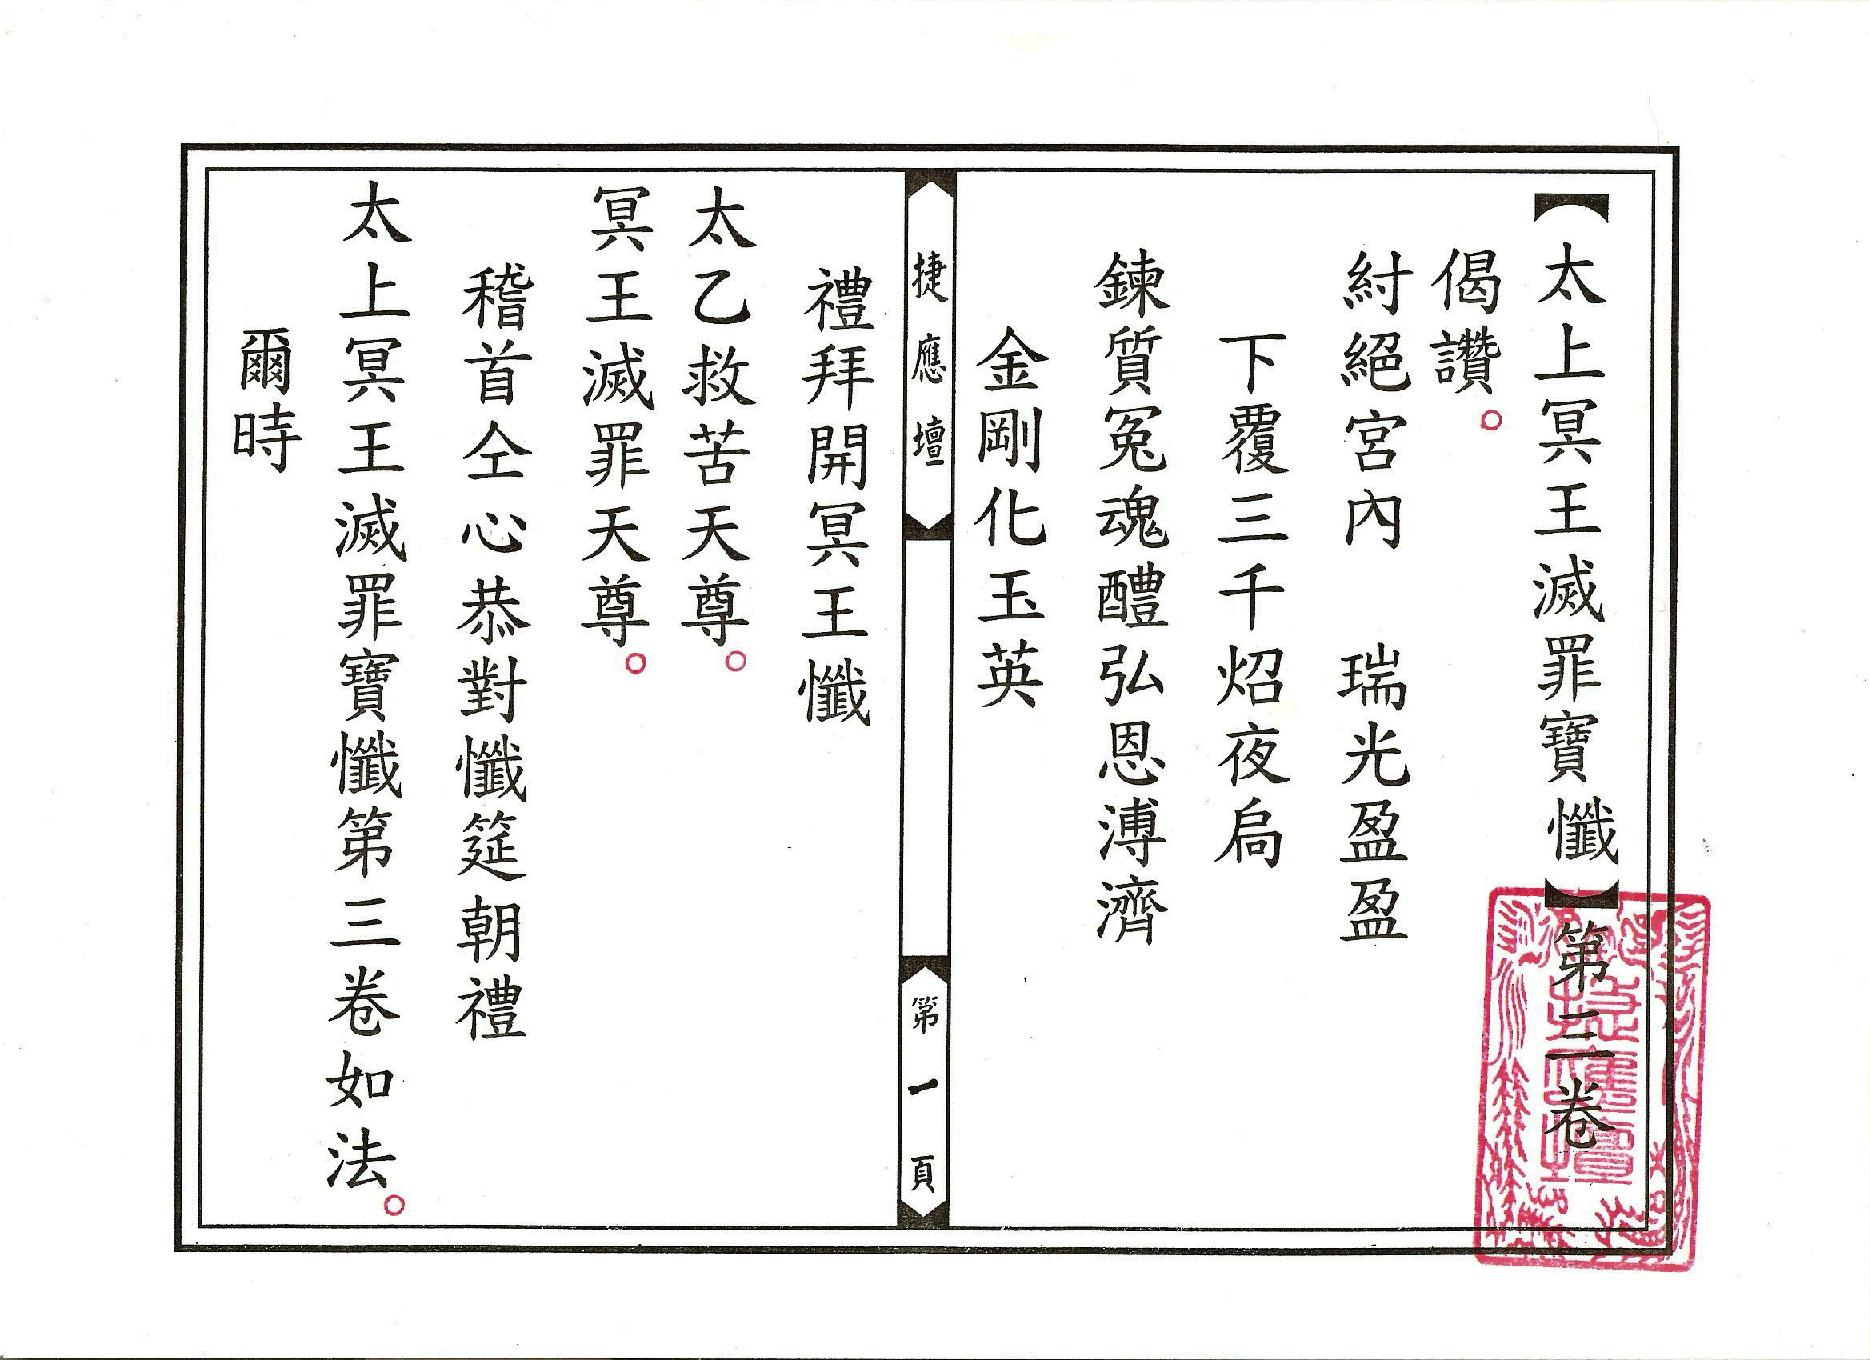 【太上冥王滅罪寶懺】第三卷
偈讚。
紂絕宮內　瑞光盈盈
下覆三千炤夜扃
鍊質冤魂醴弘恩溥濟
金剛化玉英
捷應壇
第一頁
禮拜開冥王懺
太乙救苦天尊。
冥王滅罪天尊。
稽首仝心恭對懺筵朝禮
太上冥王滅罪寶懺第三卷如法。
爾時
捷應壇